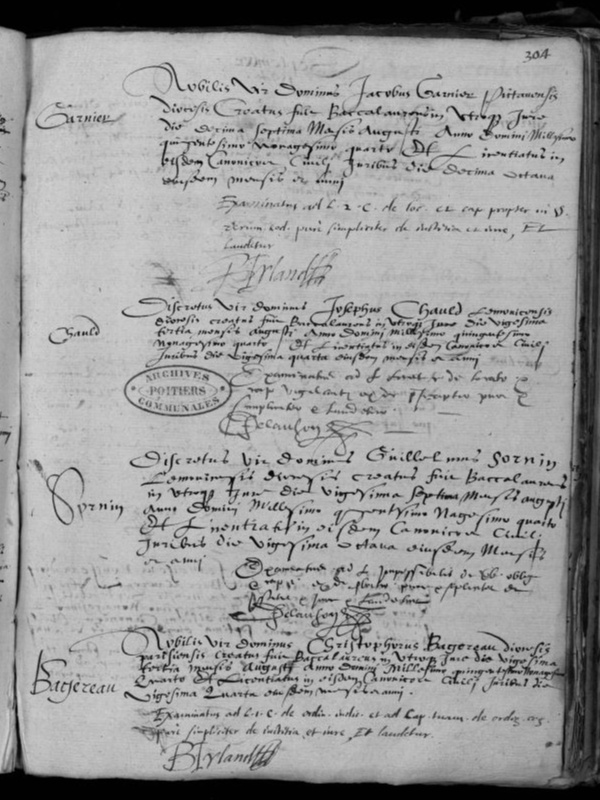 304
Garnier
Nobilis Vir dominus Jacobus Garnier Pictavensis
diocesis Creatus fuit Baccalaureus in Utroq Jure
die decima septima Mensis Augusti Anno domini Millesimo
quingentesimo nonagesimo quarto Et Licentiatus in
eisdem Canonico et Civili Juribus die decima octava
eiusdem mensis et anni
Examinatus ad L. 2. C. de et cap propter in
pure simpliciter de Justitia et iure, Et
laudetur
Chauld
Discretus Vir dominus Josephus Chauld Lemovicensis
diocesis creatus fuit Baccalaureus in utroq Jure die vigesima
tertia mensis augusti Anno domini millesimo quingentesimo
nonagesimo quarto Et Licentiatus in eisdem Canonico et Civili
Juribus die Vigesima quarta eiusdem mensis et anni
Examinatus ad L
simpliciter et laudetur
ARCHIVES
POITIERS
COMMUNALES
Sornin
Discretus Vir dominus Guillelmus Sornin
Lemovicensis diocesis creatus fuit Baccalaureus
in Utroq Jure die Vigesima septima Mensis augusti
Anno domini Millesimo quingentesimo Nonagesimo quarto
Et Licentiatus in eisdem Canonico et Civili
Juribus die Vigesima octava eiusdem Mensis
et anni
Examinatus ad L Impossibilis de Vb. oblig
pure et simpliciter de
Justitia et Jure et laudetur
Bagereau
Nobilis Vir dominus Christophorus Bagereau diocesis
parisiensis Creatus fuit Baccalaureus in Utroq Jure die Vigesima
tertia mensis Augusti Anno domini Millesimo quingentesimo Nonagesimo
Quarto Et Licentiatus in eisdem Canonico et Civili Juribus die
Vigesima Quarta eiusdem mensis et anni.
Examinatus ad L. 1. C. de ordin. iudic. et ad Cap. de ordin. cog.
pure simpliciter de Justitia et iure, Et laudetur.